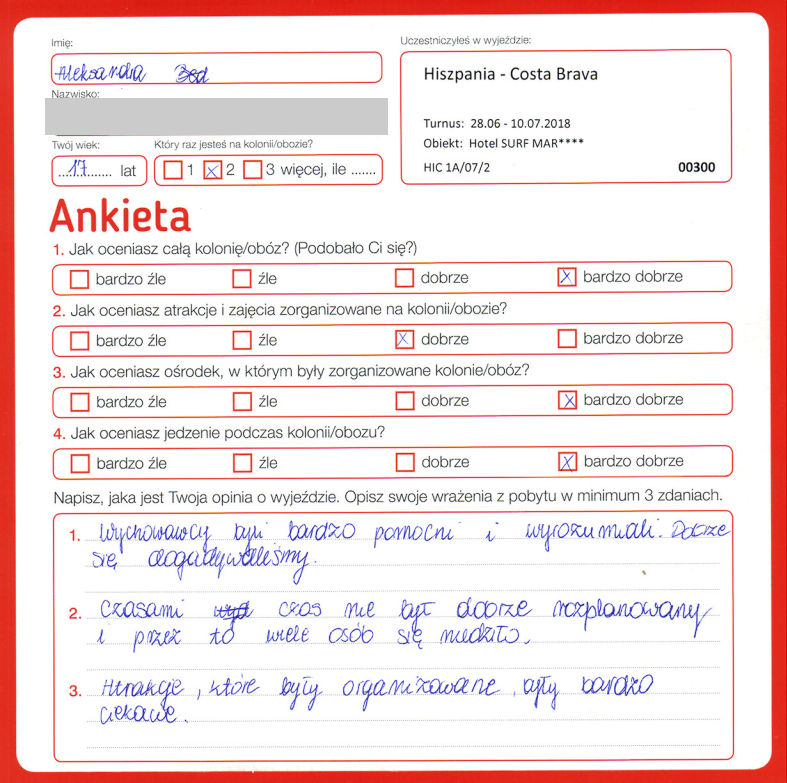 Imię:
Aleksandra Bed
Nazwisko:
Twój wiek:
17 lat
Który raz jesteś na kolonii/obozie?
1 x 2 3 więcej, ile .......
Uczestniczyłeś w wyjeździe:
Hiszpania - Costa Brava
Turnus: 28.06 - 10.07.2018
Obiekt: Hotel SURF MAR****
HIC 1A/07/2 00300
Ankieta
1. Jak oceniasz całą kolonię/obóz? (Podobało Ci się?)
bardzo źle źle dobrze x bardzo dobrze
2. Jak oceniasz atrakcje i zajęcia zorganizowane na kolonii/obozie?
bardzo źle źle x dobrze bardzo dobrze
3. Jak oceniasz ośrodek, w którym były zorganizowane kolonie/obóz?
bardzo źle źle dobrze x bardzo dobrze
4. Jak oceniasz jedzenie podczas kolonii/obozu?
bardzo źle źle dobrze x bardzo dobrze
Napisz, jaka jest Twoja opinia o wyjeździe. Opisz swoje wrażenia z pobytu w minimum 3 zdaniach.
1. Wychowawcy byli bardzo pomocni i wyrozumiali. Dobrze
się dogadywaliśmy.
2. Czasami czas nie był dobrze rozplanowany
i przez to wiele osób się nudziło.
3. Atrakcje, które były organizowane, były bardzo
ciekawe.